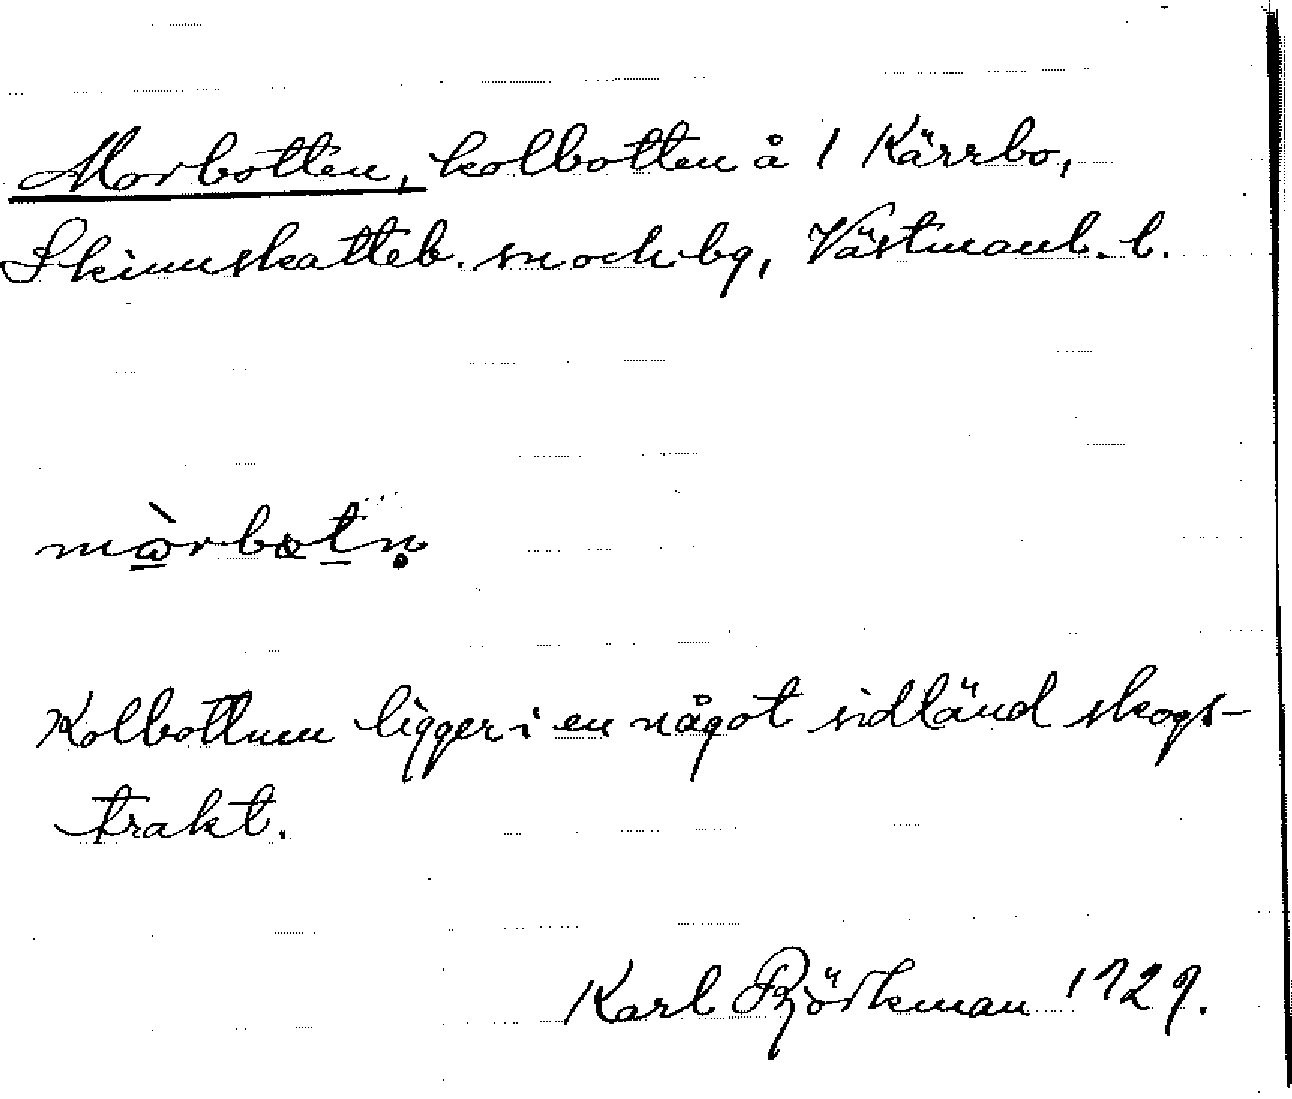 Morbotten, kolbotten å 1 Kärrbo,
Skinnskatteb. sn och bg, Västmanl. l.
mò̲rbot̲ṇ
Kolbottnen ligger i en något sidländ skogs-
trakt.
Karl Björkman 1929.